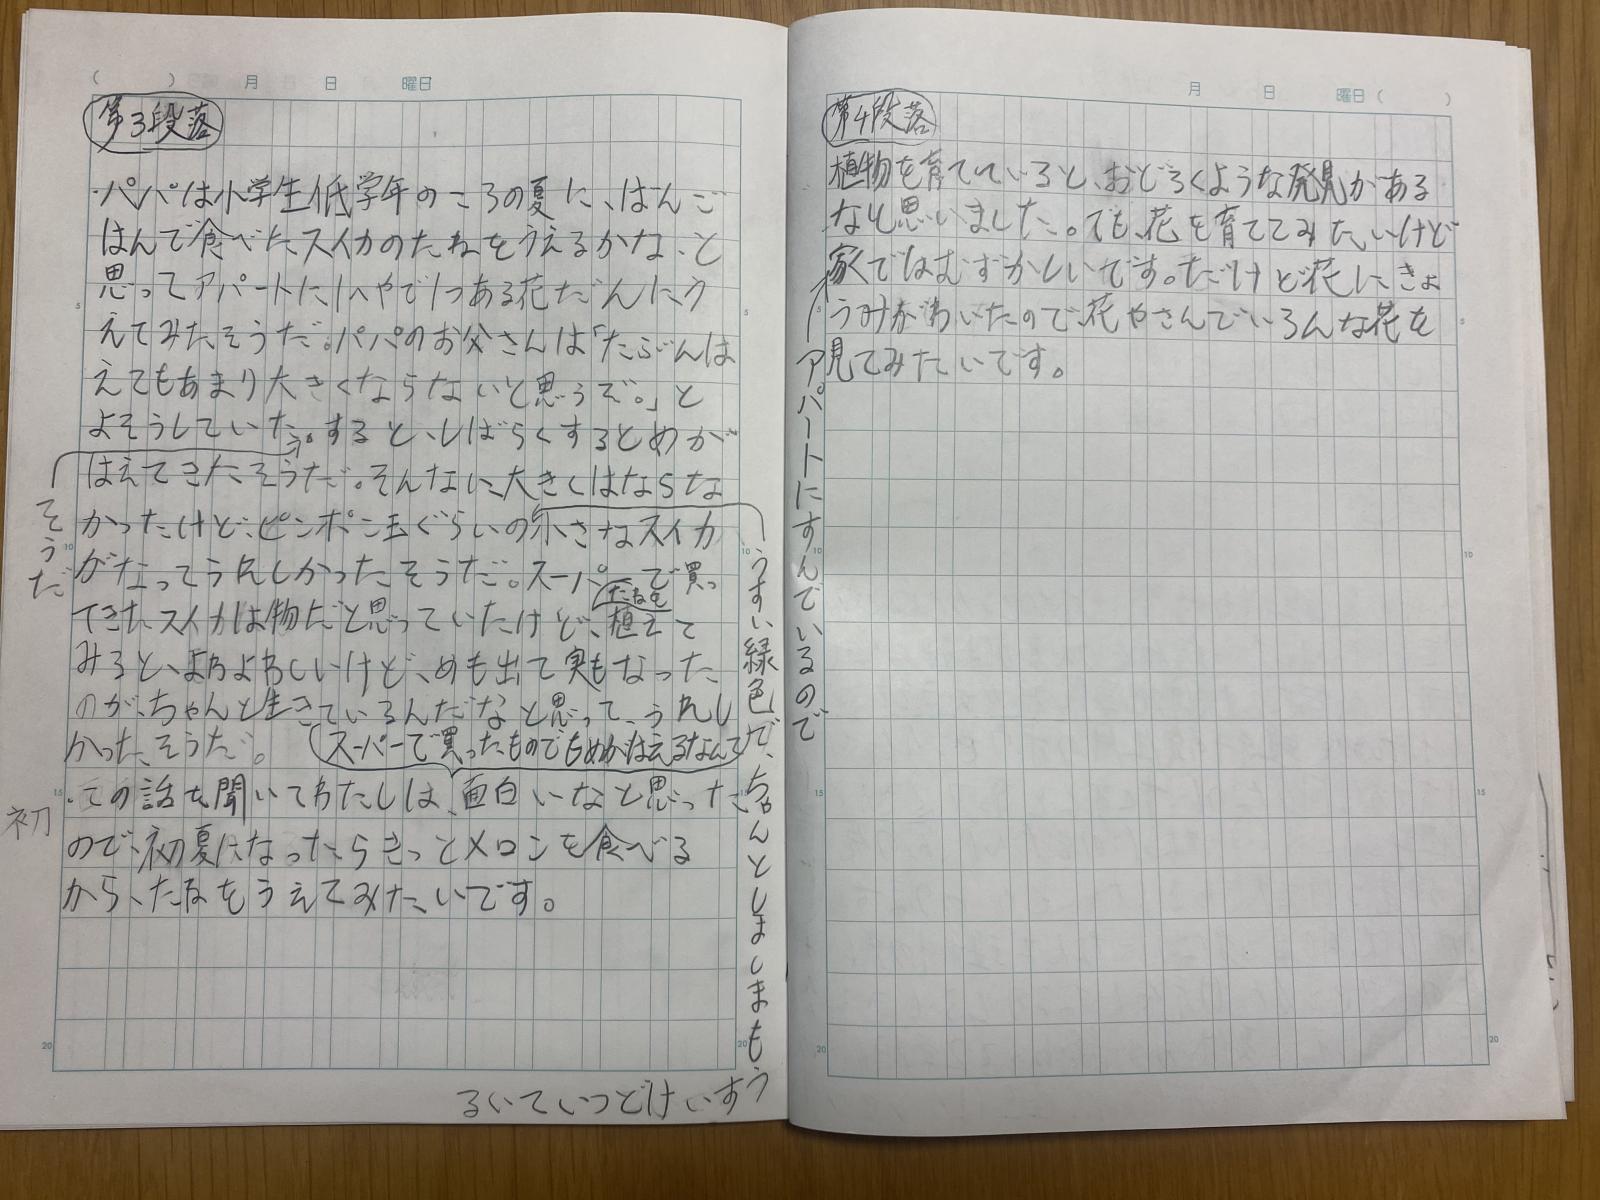 ( ) 月 日 曜日
第3段落
・パパは小学生低学年のころの夏に、ばんご
はんで食べたスイカのたねをうえるかな、と
思ってアパートに1へやで1つある花だんにう
えてみたそうだ。パパのお父さんは「たぶんは
えてもあまり大きくならないと思うぞ。」と
よそうしていた。すると、しばらくするとめが
そうだ
はえてきたそうだ。そんなに大きくはならな
かったけど、ピンポン玉ぐらいの小さなスイカ
うすい緑色で、ちゃんとしましまもう
すいけどついている
がなってうれしかったそうだ。スーパーで買っ
てきたスイカは物だと思っていたけど、植えて
たねを
みると、よわよわしいけど、めも出て実もなった
のが、ちゃんと生きているんだなと思って、うれし
かったそうだ。
スーパーで買ったものでもめがはえるなんて
・この話を聞いてわたしは、面白いなと思った
ので、初夏になったらきっとメロンを食べる
初
から、たねをうえてみたいです。
5
10
15
20
月 日 曜日 ( )
第4段落
植物を育てていると、おどろくような発見がある
なと思いました。でも、花を育ててみたいけど
家ではむずかしいです。だけど花にきょ
アパートにすんでいるので
うみがわいたので、花やさんでいろんな花を
見てみたいです。
5
10
15
20